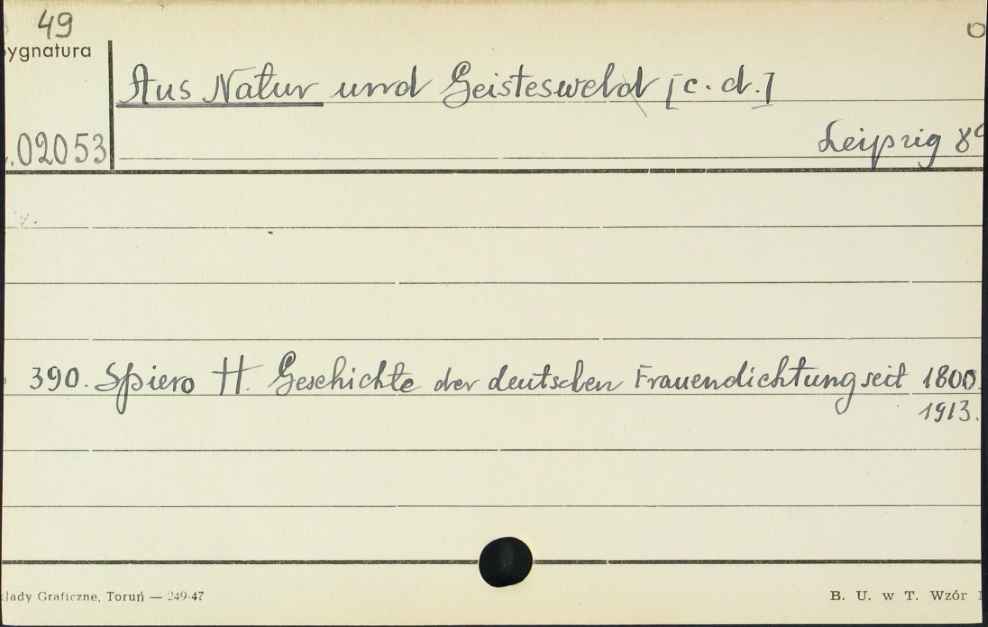 49
ygnatura
Aus Natur und Geisteswelt [c. d.]
.02053
Leipzig 8°
390. Spiero H. Geschichte der deutschen Frauendichtung seit 1800.
1913.
łady Graficzne, Toruń — 249-47
B. U. w T. Wzór